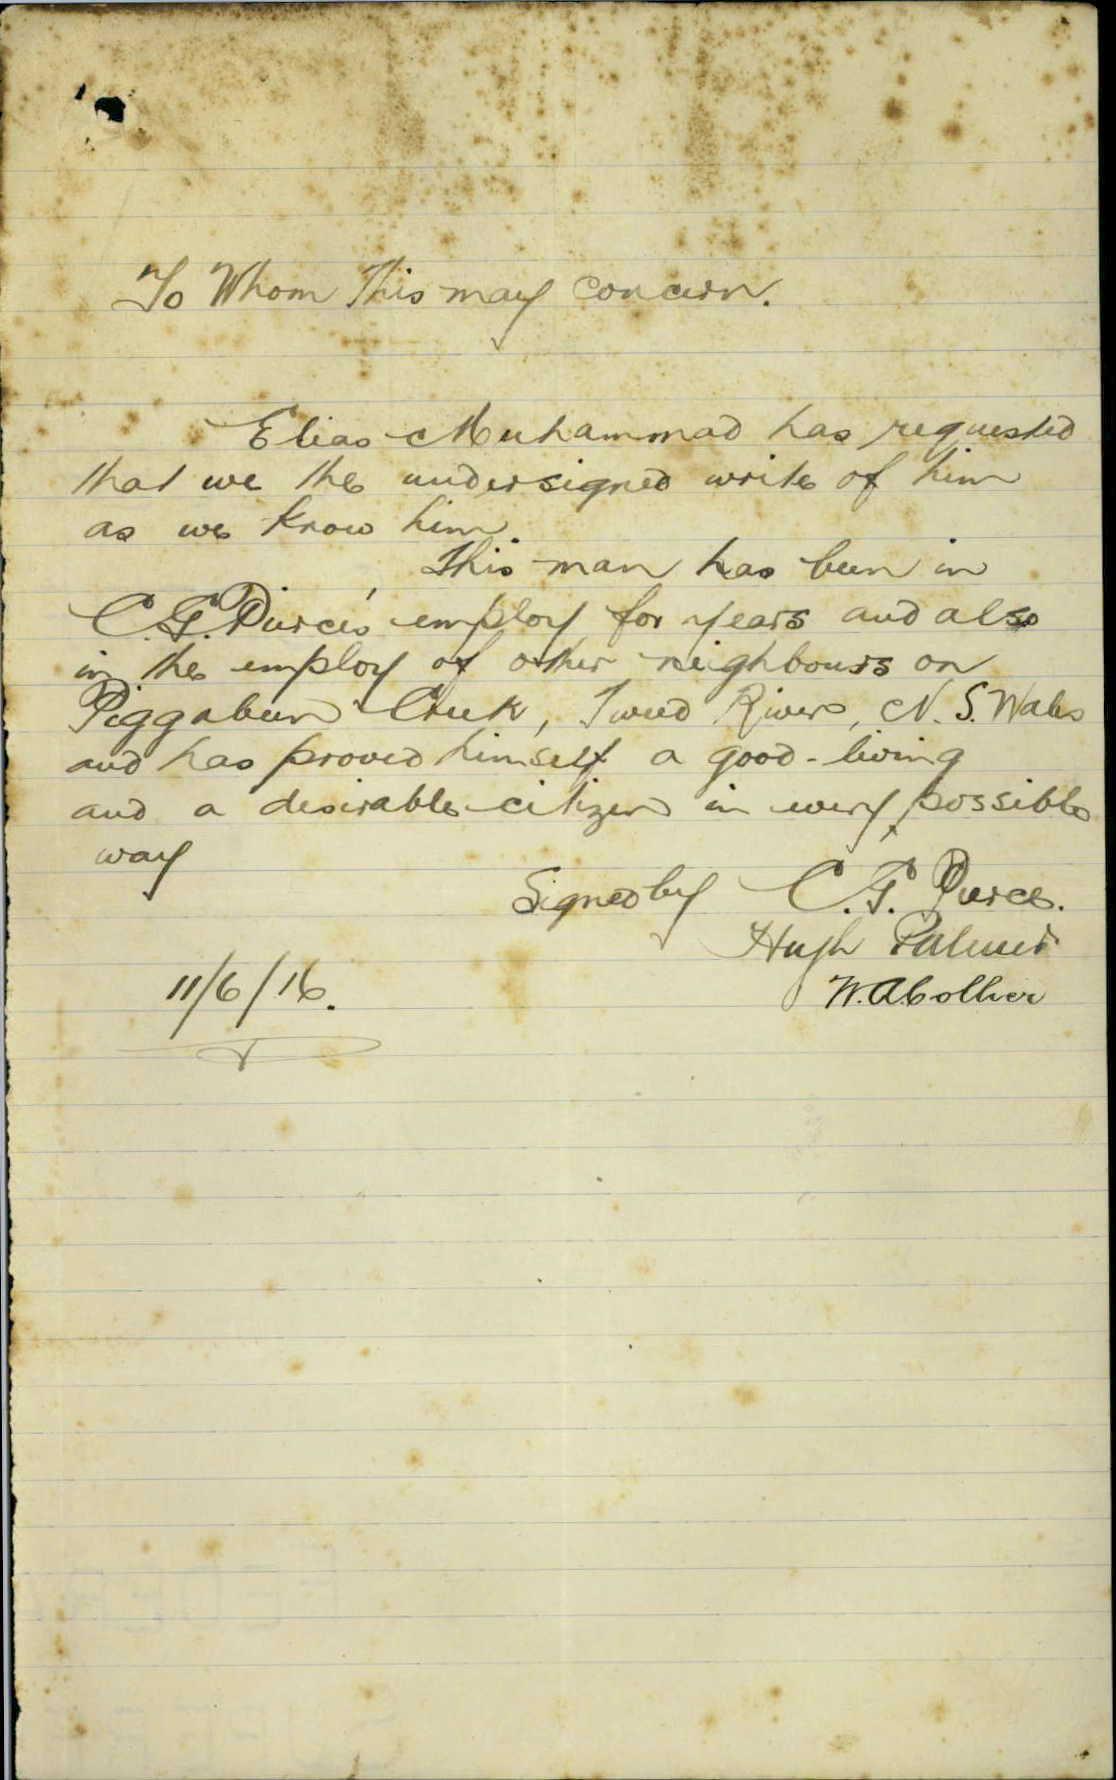 To Whom This may concern.
Elias Muhammad has requested
that we the undersigned write of him
as we know him
This man has been in
C. G. Pierce's employ for years and also
in the employ of other neighbours on
Piggabeen Creek, Tweed River, N. S. Wales
and has proved himself a good-living
and a desirable citizen in every possible
way
Signed by C. G. Pierce.
Hugh Palmer
W. A. Collier
11/6/16.